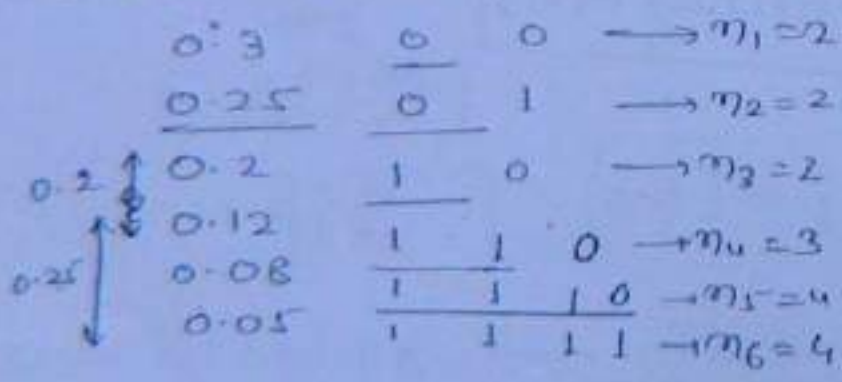 0.3 0 0 → n1 = 2
0.25 0 1 → n2 = 2
0.2 0.2 1 0 → n3 = 2
0.12 1 1 0 → n4 = 3
0.25 0.08 1 1 1 0 → n5 = 4
0.05 1 1 1 1 → n6 = 4